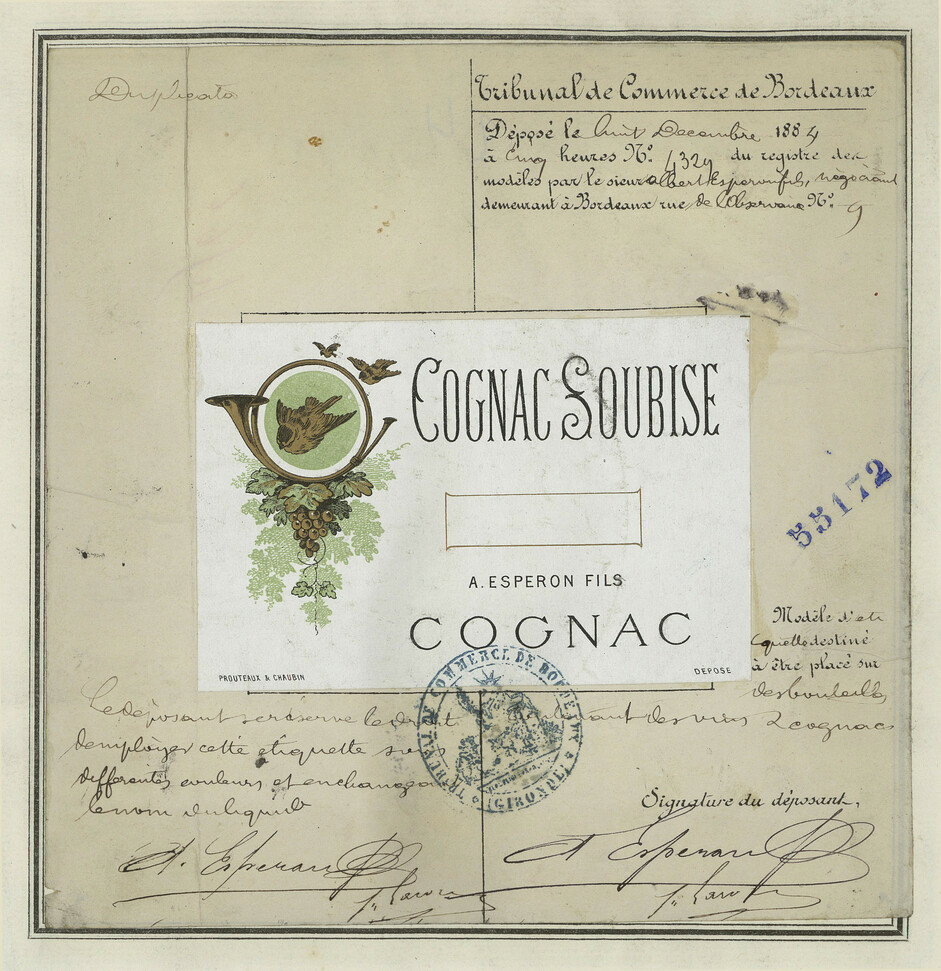 Duplicata
Tribunal de Commerce de Bordeaux
Déposé le huit Decembre 1884
à Cinq heures Nº 4329 du registre des
modèles par le sieur Albert Esperon fils, négociant
demeurant à Bordeaux rue de l'Observance Nº 9
COGNAC SOUBISE
A. ESPERON FILS
COGNAC
PROUTEAUX & CHAUBIN
DEPOSE
55172
Modèle d'eti
quette destiné
à être placé sur
des bouteilles
contenant des vins & cognacs
Le déposant se réserve le droit
d'employer cette étiquette sous
differentes couleurs et en changeant
le nom du liquide
TRIBUNAL DE COMMERCE DE BORDEAUX
(GIRONDE)
Signature du déposant,
A. Esperon
A Esperon